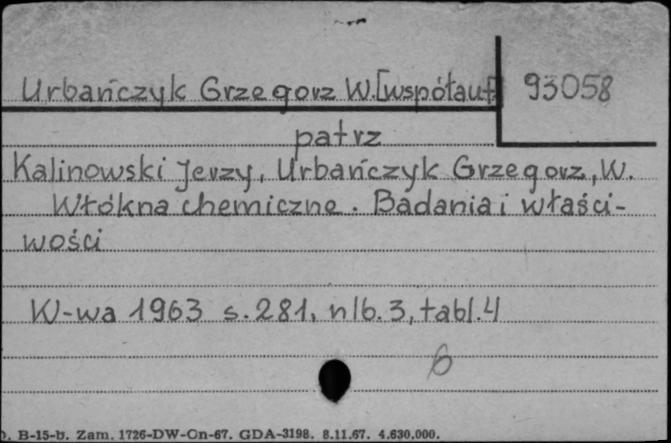 Urbańczyk Grzegorz W. [współaut] 93058
patrz
Kalinowski Jerzy, Urbańczyk Grzegorz, W.
Włókna chemiczne. Badania i właści-
wości
W-wa 1963 s. 281, nlb. 3, tabl. 4
6
B-15-b. Zam. 1726-DW-Gn-67. GDA-3198. 8.11.67. 4.630.000.